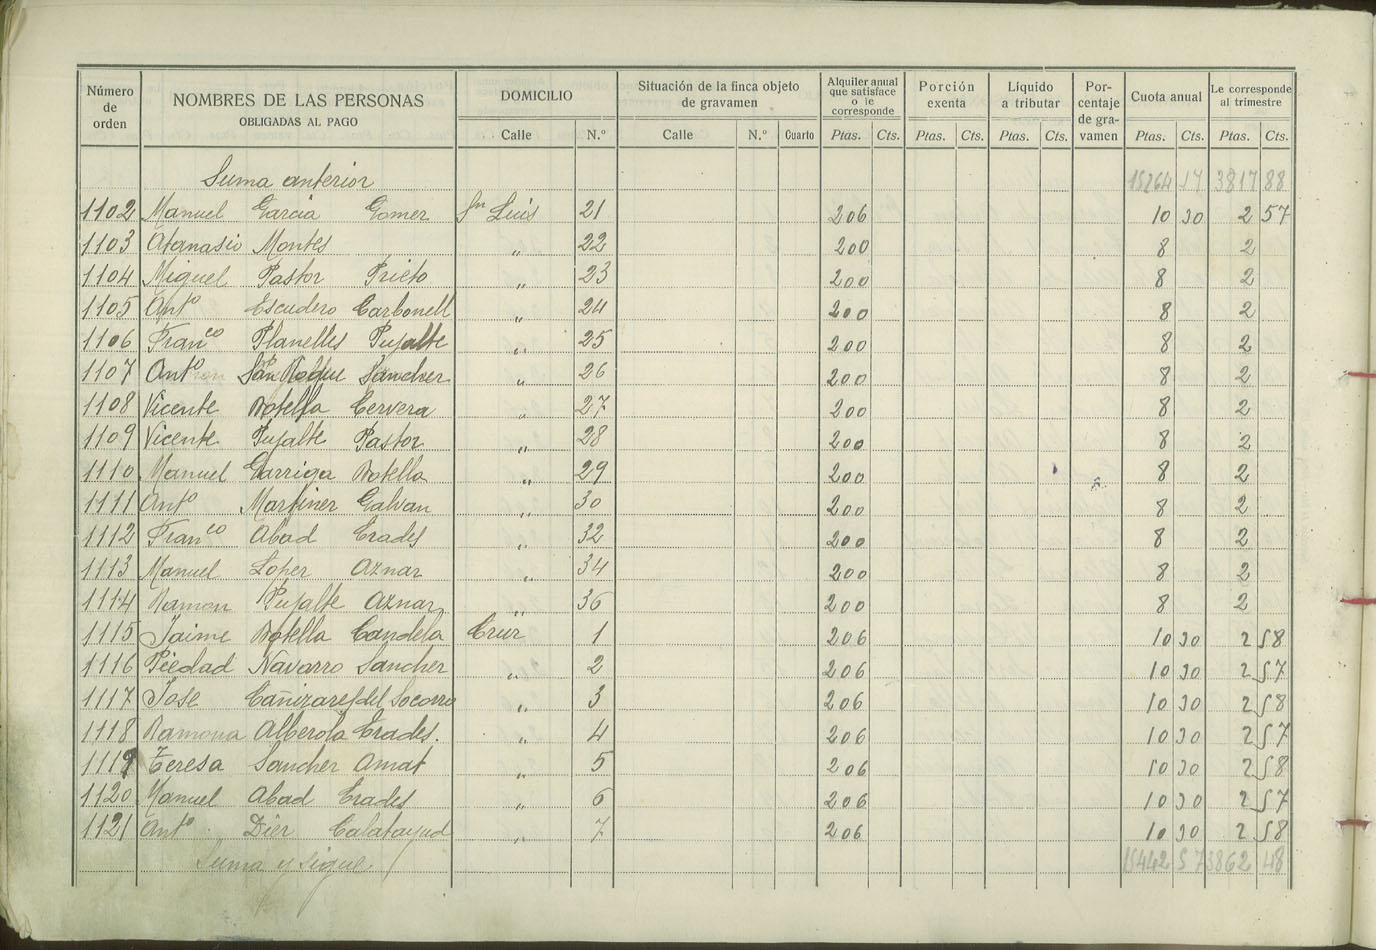 Número de orden NOMBRES DE LAS PERSONAS OBLIGADAS AL PAGO DOMICILIO Situación de la finca objeto de gravamen Alquiler anual que satisface o le corresponde Porción exenta Líquido a tributar Por-centaje de gra-vamen Cuota anual Le corresponde al trimestre
Calle N.º Calle N.º Cuarto Ptas. Cts. Ptas. Cts. Ptas. Cts. Ptas. Cts. Ptas. Cts.
Suma anterior 15264 17 3817 88
1102 Manuel Garcia Gomez Sn Luis 21 206 10 30 2 57
1103 Atanasio Montes " 22 200 8 2
1104 Miguel Pastor Prieto " 23 200 8 2
1105 Antº Escudero Carbonell " 24 200 8 2
1106 Franco Planelles Pujalte " 25 200 8 2
1107 Antº San Roque Sanchez " 26 200 8 2
1108 Vicente Botella Cervera " 27 200 8 2
1109 Vicente Pujalte Pastor " 28 200 8 2
1110 Manuel Garriga Botella " 29 200 8 2
1111 Antº Martinez Galvan " 30 200 8 2
1112 Franco Abad Erades " 32 200 8 2
1113 Manuel Lopez Aznar " 34 200 8 2
1114 Ramon Pujalte Aznar " 36 200 8 2
1115 Jaime Botella Candela Cruz 1 206 10 30 2 58
1116 Piedad Navarro Sanchez " 2 206 10 30 2 57
1117 Jose Cañizares del Socorro " 3 206 10 30 2 58
1118 Ramona Alberola Erades. " 4 206 10 30 2 57
1119 Teresa Sanchez Amat " 5 206 10 30 2 58
1120 Manuel Abad Erades " 6 206 10 30 2 57
1121 Antº Diez Calatayud " 7 206 10 30 2 58
Suma y sigue 15442 57 3862 48